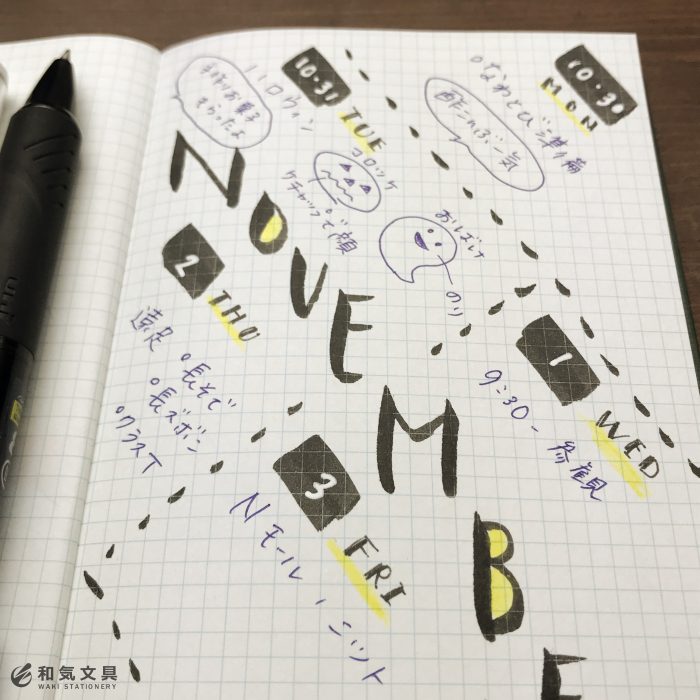 10:30
MON
なわとび準備
10・31
TUE
ハロウィン
手作りお菓子
もらったよ
コロッケ
ケチャップで顔
おばけ
のり
1
WED
9:30-
2
THU
遠足
長そで
長ズボン
クラスT
3
FRI
Nモール
ニット
NOVEMBE
和気文具
WAKI STATIONERY
uni